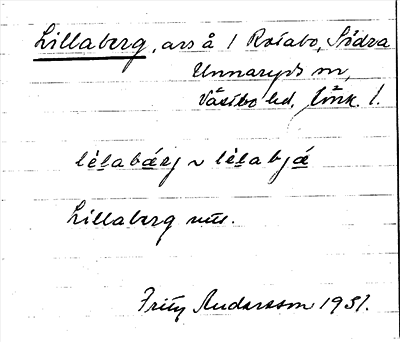 Lillaberg, ars å 1 Rosabo, Södra
Unnaryds sn,
Västbo hd, Jönk. l.
lèlabærj ~ lèlabjæ
Lillaberg
Fritz Andersson 1931.